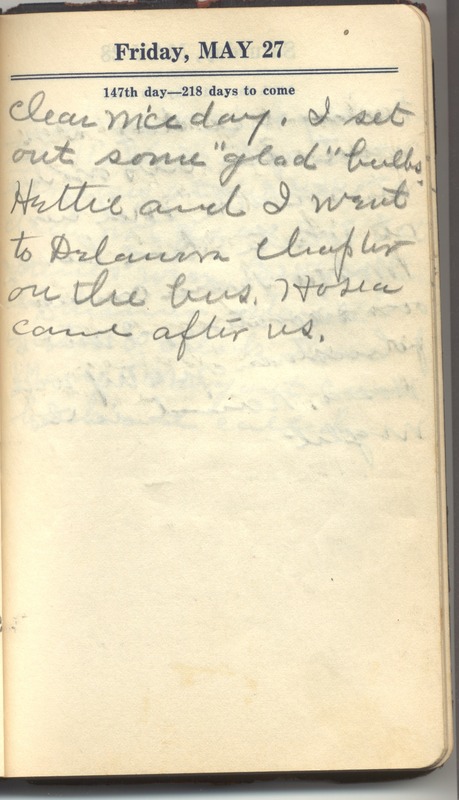 Friday, MAY 27
147th day—218 days to come
Clear nice day. I set
out some "glad" bulbs.
Hettie and I went
to Delanson chapter
on the bus. Hosea
came after us.